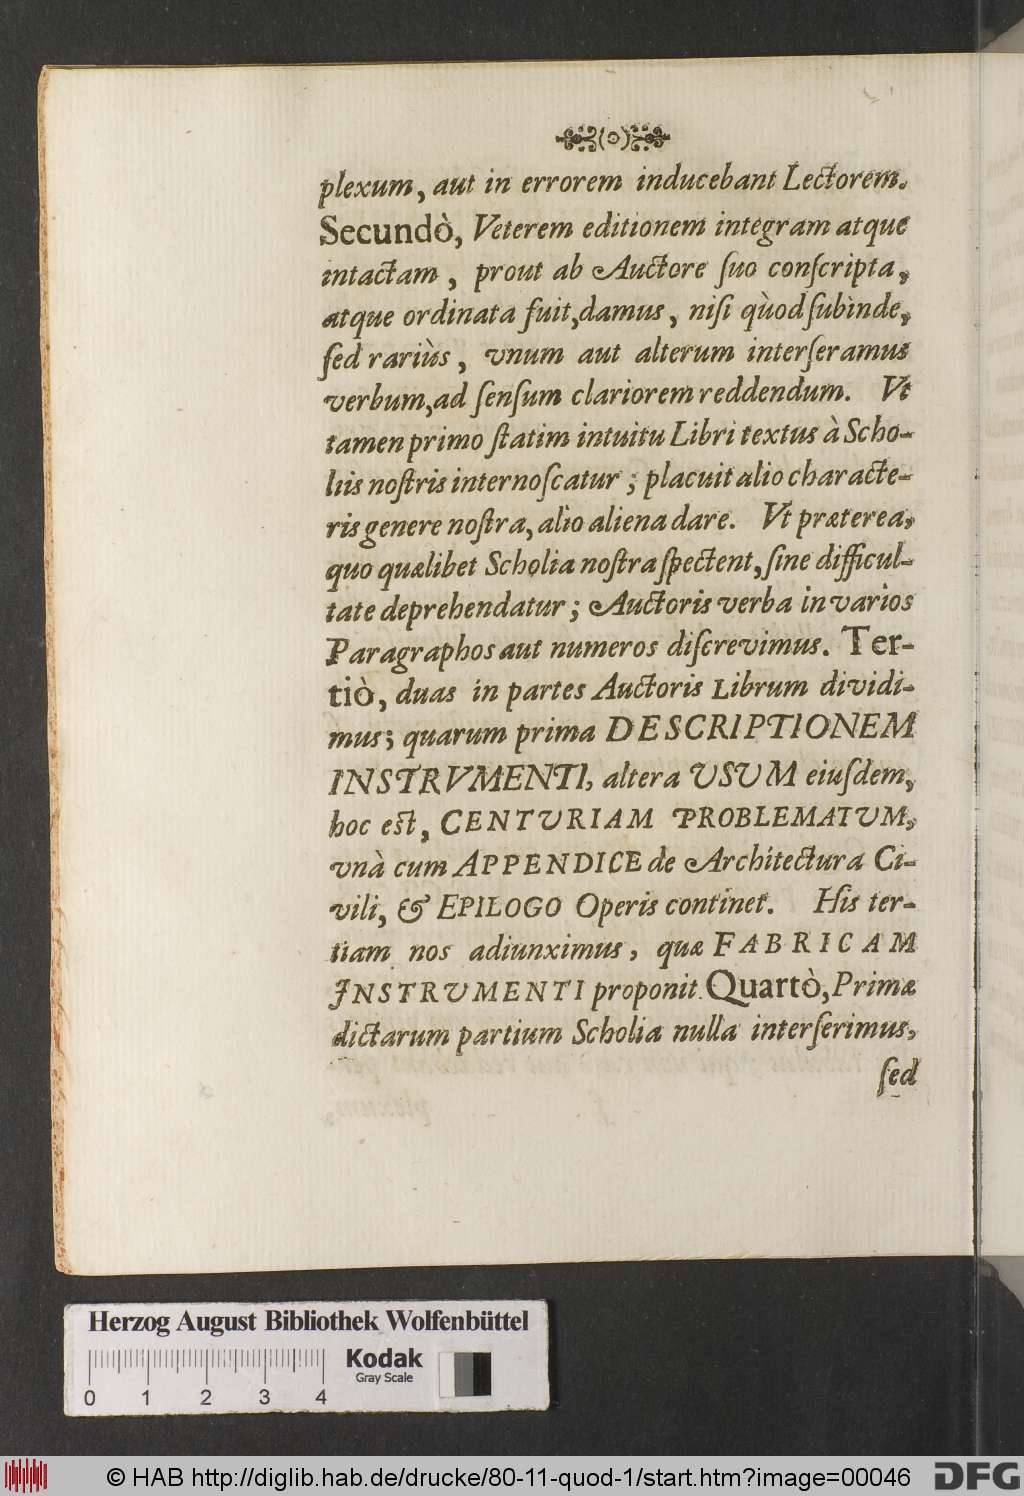 plexum, aut in errorem inducebant Lectorem.
Secundò, Veterem editionem integram atque
intactam, prout ab Auctore ſuo conſcripta,
atque ordinata fuit, damus, niſi quòd ſubinde,
ſed rariùs, vnum aut alterum interſeramus
verbum, ad ſenſum clariorem reddendum. Vt
tamen primo ſtatim intuitu Libri textus à Scho-
liis noſtris internoſcatur; placuit alio characte-
ris genere noſtra, alio aliena dare. Vt præterea,
quo quælibet Scholia noſtra ſpectent, ſine difficul-
tate deprehendatur; Auctoris verba in varios
Paragraphos aut numeros diſcrevimus. Ter-
tiò, duas in partes Auctoris Librum dividi-
mus; quarum prima DESCRIPTIONEM
INSTRVMENTI, altera USUM eiuſdem,
hoc eſt, CENTURIAM PROBLEMATUM,
vnà cum APPENDICE de Architectura Ci-
vili, & EPILOGO Operis continet. His ter-
tiam nos adiunximus, quæ FABRICAM
INSTRUMENTI proponit. Quartò, Primæ
dictarum partium Scholia nulla interſerimus,
ſed
Herzog August Bibliothek Wolfenbüttel
Kodak
Gray Scale
0 1 2 3 4
© HAB http://diglib.hab.de/drucke/80-11-quod-1/start.htm?image=00046
DFG